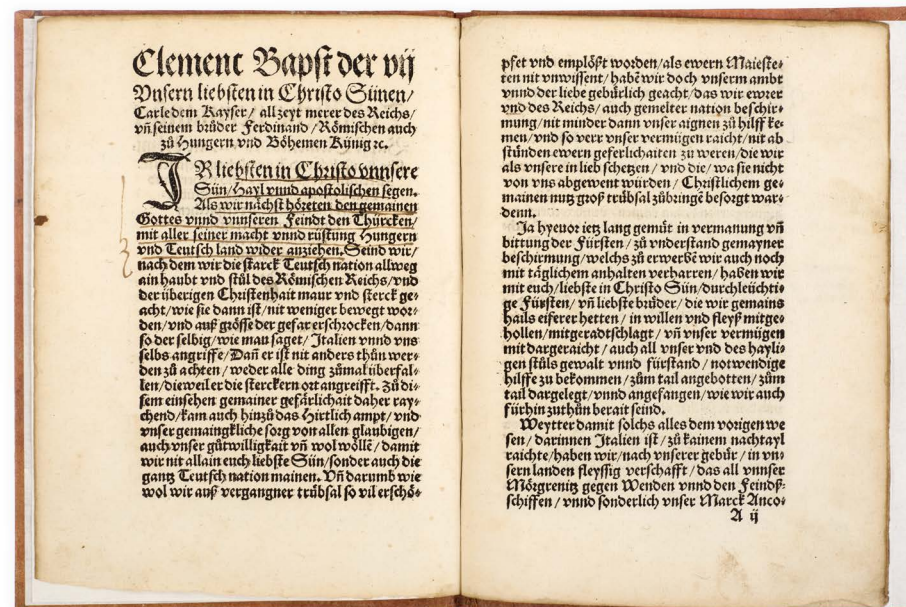 Clement Bapst der vij
Vnsern liebsten in Christo Sünen/
Carle dem Kayser/ allzeyt merer des Reichs/
vn̄ seinem brůder Ferdinand/ Römischen auch
zů Hungern vnd Böhemen Künig ꝛc.
IR liebsten in Christo vnnsere
Sün/ Hayl vnnd apostolischen segen.
Als wir nächst höreten den gemainen
Gottes vnnd vnnseren Feindt den Thürcken/
mit aller seiner macht vnnd rüstung Hungern
vnd Teutsch land wider anziehen. Seind wir/
nach dem wir die starck Teutsch nation allweg
ain haubt vnd stůl des Römischen Reichs/ vnd
der überigen Christenhait maur vnd sterck ge⸗
acht/ wie sie dann ist/ nit weniger bewegt wor⸗
den/ vnd auß grösse der gefar erschrocken/ dann
so der selbig/ wie mau saget/ Italien vnnd vns
selbs angriffe/ Dañ er ist nit anders thůn wer⸗
den zů achten/ weder alle ding zůmal überfal⸗
len/ dieweil er die sterckern ort angreifft. Zů di⸗
sem einsehen gemainer gefärlichait daher ray⸗
chend/ kam auch hinzů das Hirtlich ampt/ vnd
vnser gemaingkliche sorg von allen glaubigen/
auch vnser gůtwilligkait vn̄ wol wöllē/ damit
wir nit allain euch liebste Sün/ sonder auch die
gantz Teutsch nation mainen. Vn̄ darumb wie
wol wir auß vergangner trübsal so vil erschö⸗
pfet vnd emplößt worden/ als ewern Maieste⸗
ten nit vnwissent/ habē wir doch vnserm ambt
vnnd der liebe gebürlich geacht/ das wir ewrer
vnd des Reichs/ auch gemelter nation beschir⸗
mung/ nit minder dann vnser aignen zů hilff ke⸗
men/ vnd so verr vnser vermügen raicht/ nit ab
stünden ewern geferlichaiten zů weren/ die wir
als vnsere in lieb schetzen/ vnd die/ wa sie nicht
von vns abgewent würden/ Christlichem ge⸗
mainen nutz groß trübsal zůbringē besorgt war⸗
denn.
Ja hyeuor ietz lang gemüt in vermanung vn̄
bittung der Fürsten/ zů vnderstand gemayner
beschirmung/ welchs zů erwerbē wir auch noch
mit täglichem anhalten verharren/ haben wir
mit euch/ liebste in Christo Sün/ durchleüchti⸗
ge Fürsten/ vn̄ liebste brüder/ die wir gemains
hails eiferer hetten/ in willen vnd fleyß mitge⸗
hollen/ mitgeradtschlagt/ vn̄ vnser vermügen
mit dargeraicht/ auch all vnser vnd des hayli⸗
gen stůls gewalt vnnd fürstand/ notwendige
hilffe zu bekommen/ zům tail angebotten/ zům
tail dargelegt/ vnnd angefangen/ wie wir auch
fürhin zuthůn berait seind.
Weytter damit solchs alles dem vorigen we
sen/ darinnen Italien ist/ zů kainem nachtayl
raichte/ haben wir/ nach vnserer gebür/ in vn⸗
sern landen fleyssig verschafft/ das all vnnser
Mörgrenitz gegen Wenden vnnd den Feindß⸗
schiffen/ vnnd sonderlich vnser Marck Anco⸗
A ij